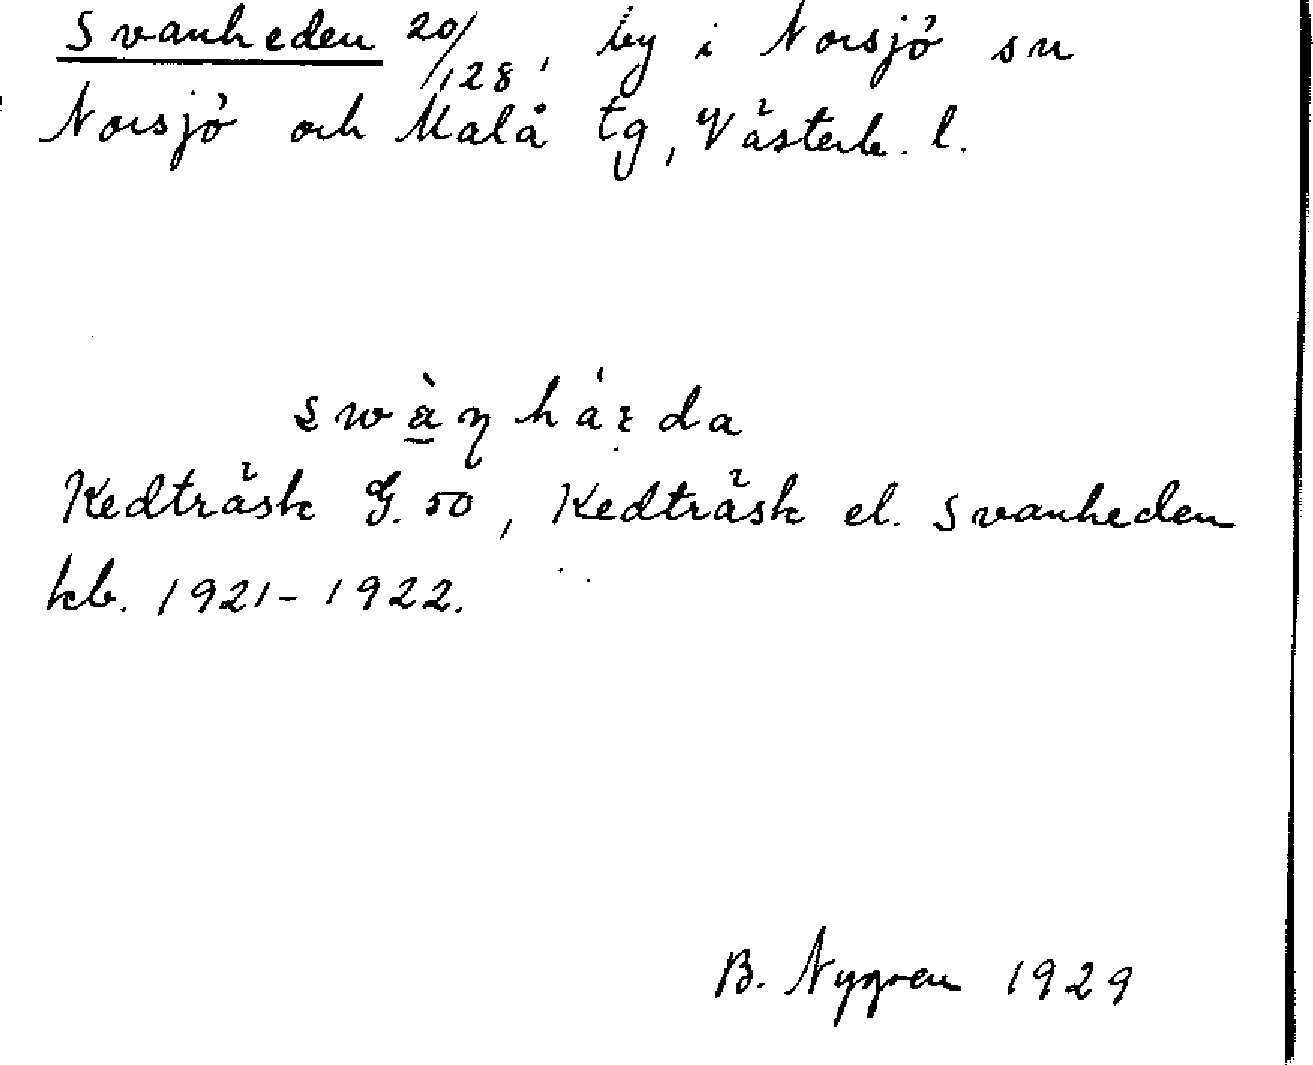 Svanheden 20/128, by i Norsjö sn
Norsjö och Malå tg, Västerb. l.
swà̱ŋ há ̨ɛ da
Kedträsk G. 50, Kedträsk el. Svanheden
kb. 1921-1922.
B. Nygren 1929